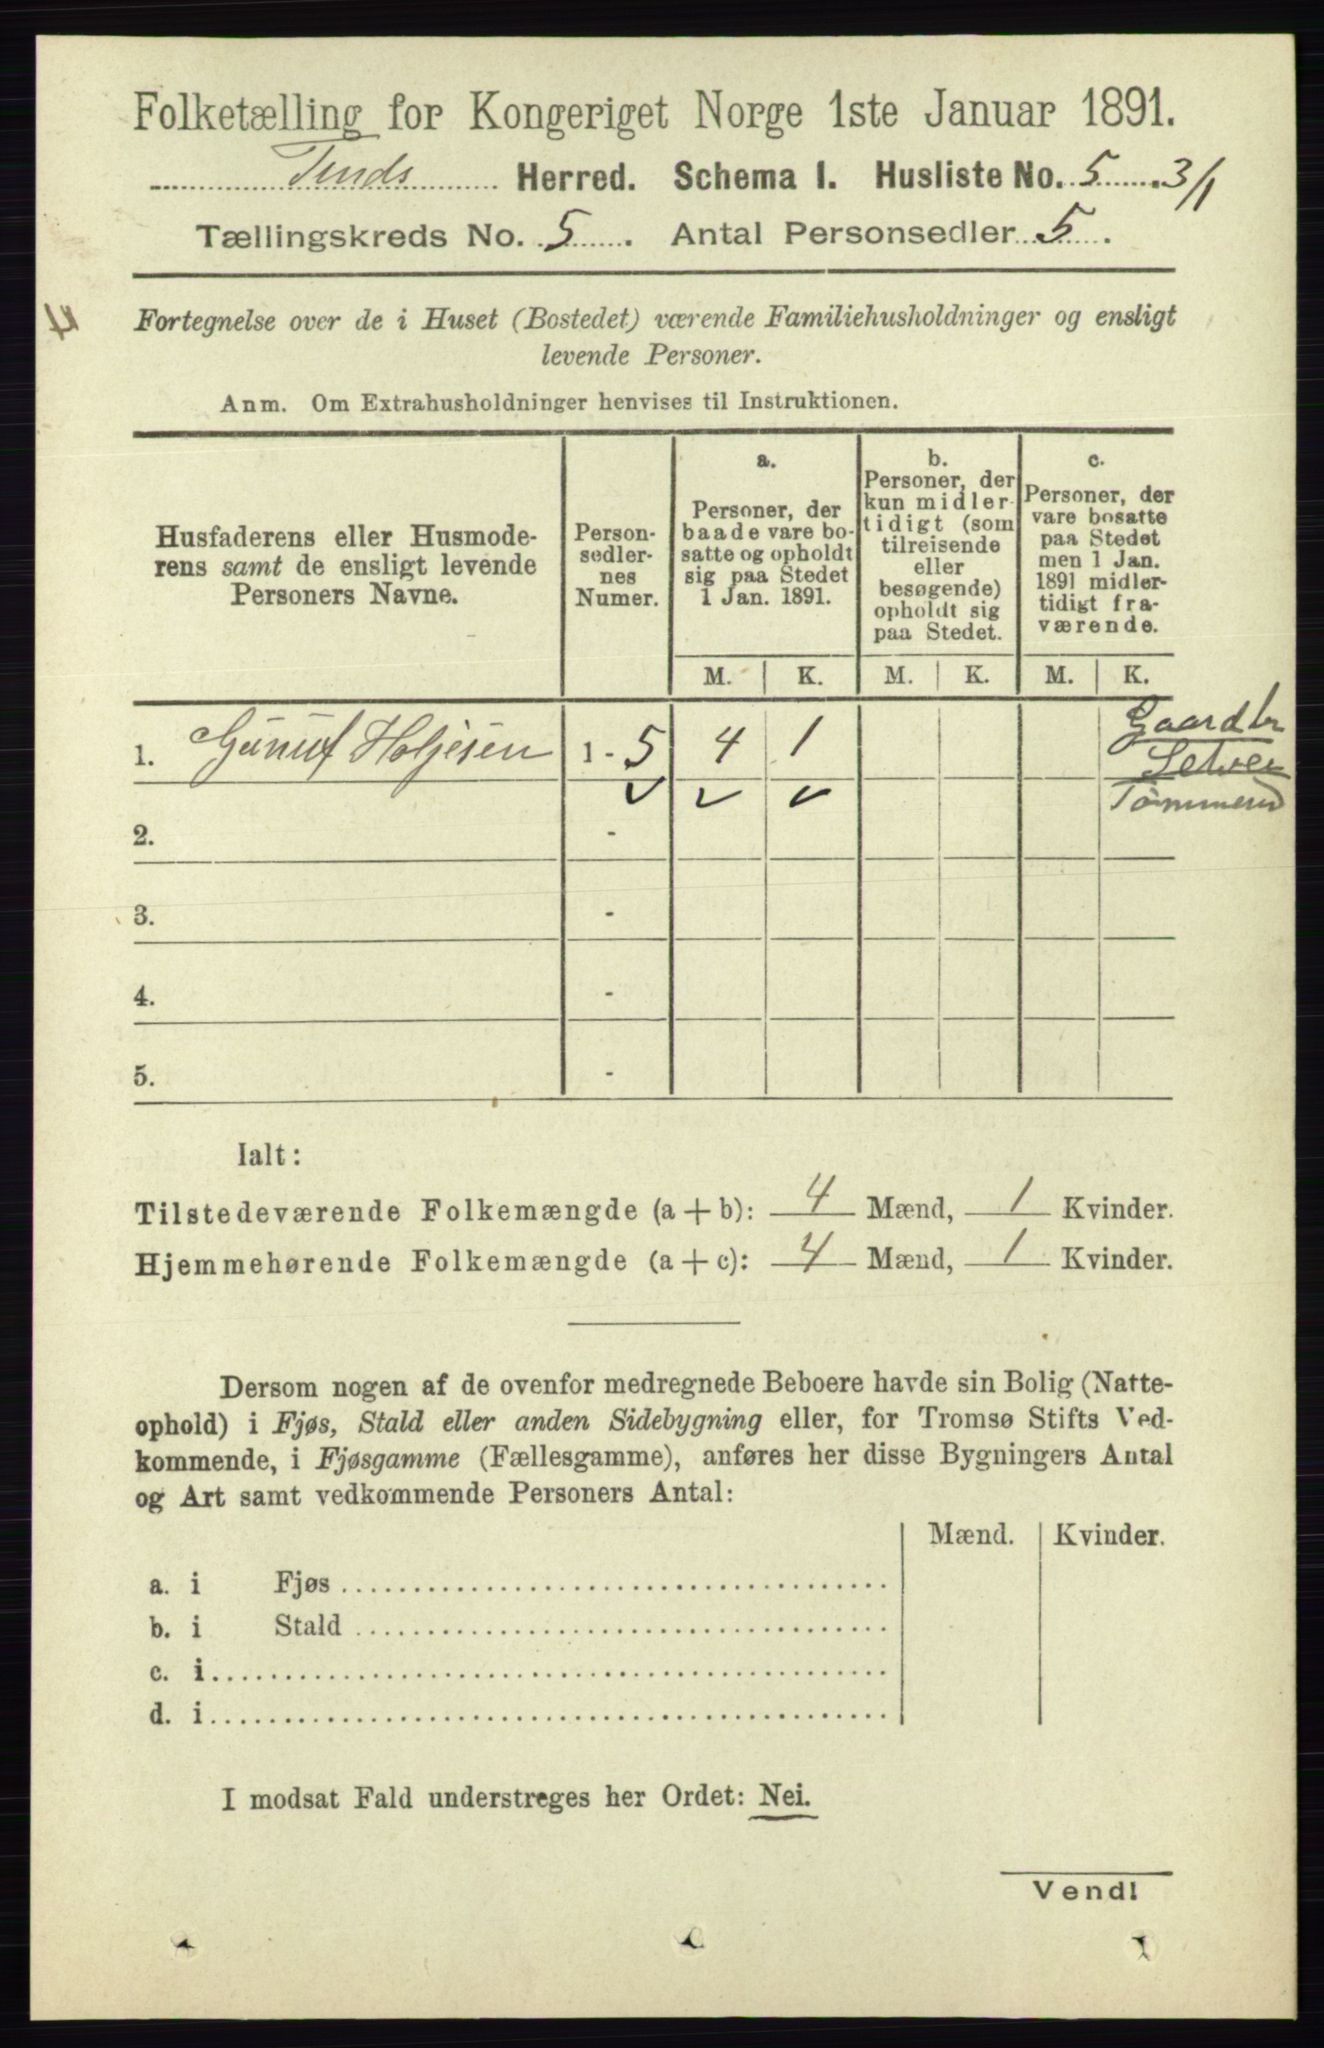 Folketælling for Kongeriget Norge 1ste Januar 1891.
Tinds Herred. Schema I. Husliste No. 5. 3/1
Tællingskreds No. 5. Antal Personsedler 5.
Fortegnelse over de i Huset (Bostedet) værende Familiehusholdninger og ensligt
levende Personer.
Anm. Om Extrahusholdninger henvises til Instruktionen.
Husfaderens eller Husmode-
rens samt de ensligt levende
Personers Navne.
Person-
sedler-
nes
Numer.
a.
Personer, der
baade vare bo-
satte og opholdt
sig paa Stedet
1 Jan. 1891.
b.
Personer, der
kun midler-
tidigt (som
tilreisende
eller
besøgende)
opholdt sig
paa Stedet.
c.
Personer, der
vare bosatte
paa Stedet
men 1 Jan.
1891 midler-
tidigt fra-
værende.
M. K. M. K. M. K.
1. Gunuf Holjesen 1 - 5 4 1
Gaardbr
Selvei
2. -
3. -
4. -
5. -
Ialt:
Tilstedeværende Folkemængde (a + b): 4 Mænd, 1 Kvinder.
Hjemmehørende Folkemængde (a + c): 4 Mænd, 1 Kvinder.
Dersom nogen af de ovenfor medregnede Beboere havde sin Bolig (Natte-
ophold) i Fjøs, Stald eller anden Sidebygning eller, for Tromsø Stifts Ved-
kommende, i Fjøsgamme (Fællesgamme), anføres her disse Bygningers Antal
og Art samt vedkommende Personers Antal:
Mænd. Kvinder.
a. i Fjøs
b. i Stald
c. i
d. i
I modsat Fald understreges her Ordet: Nei.
Vend!